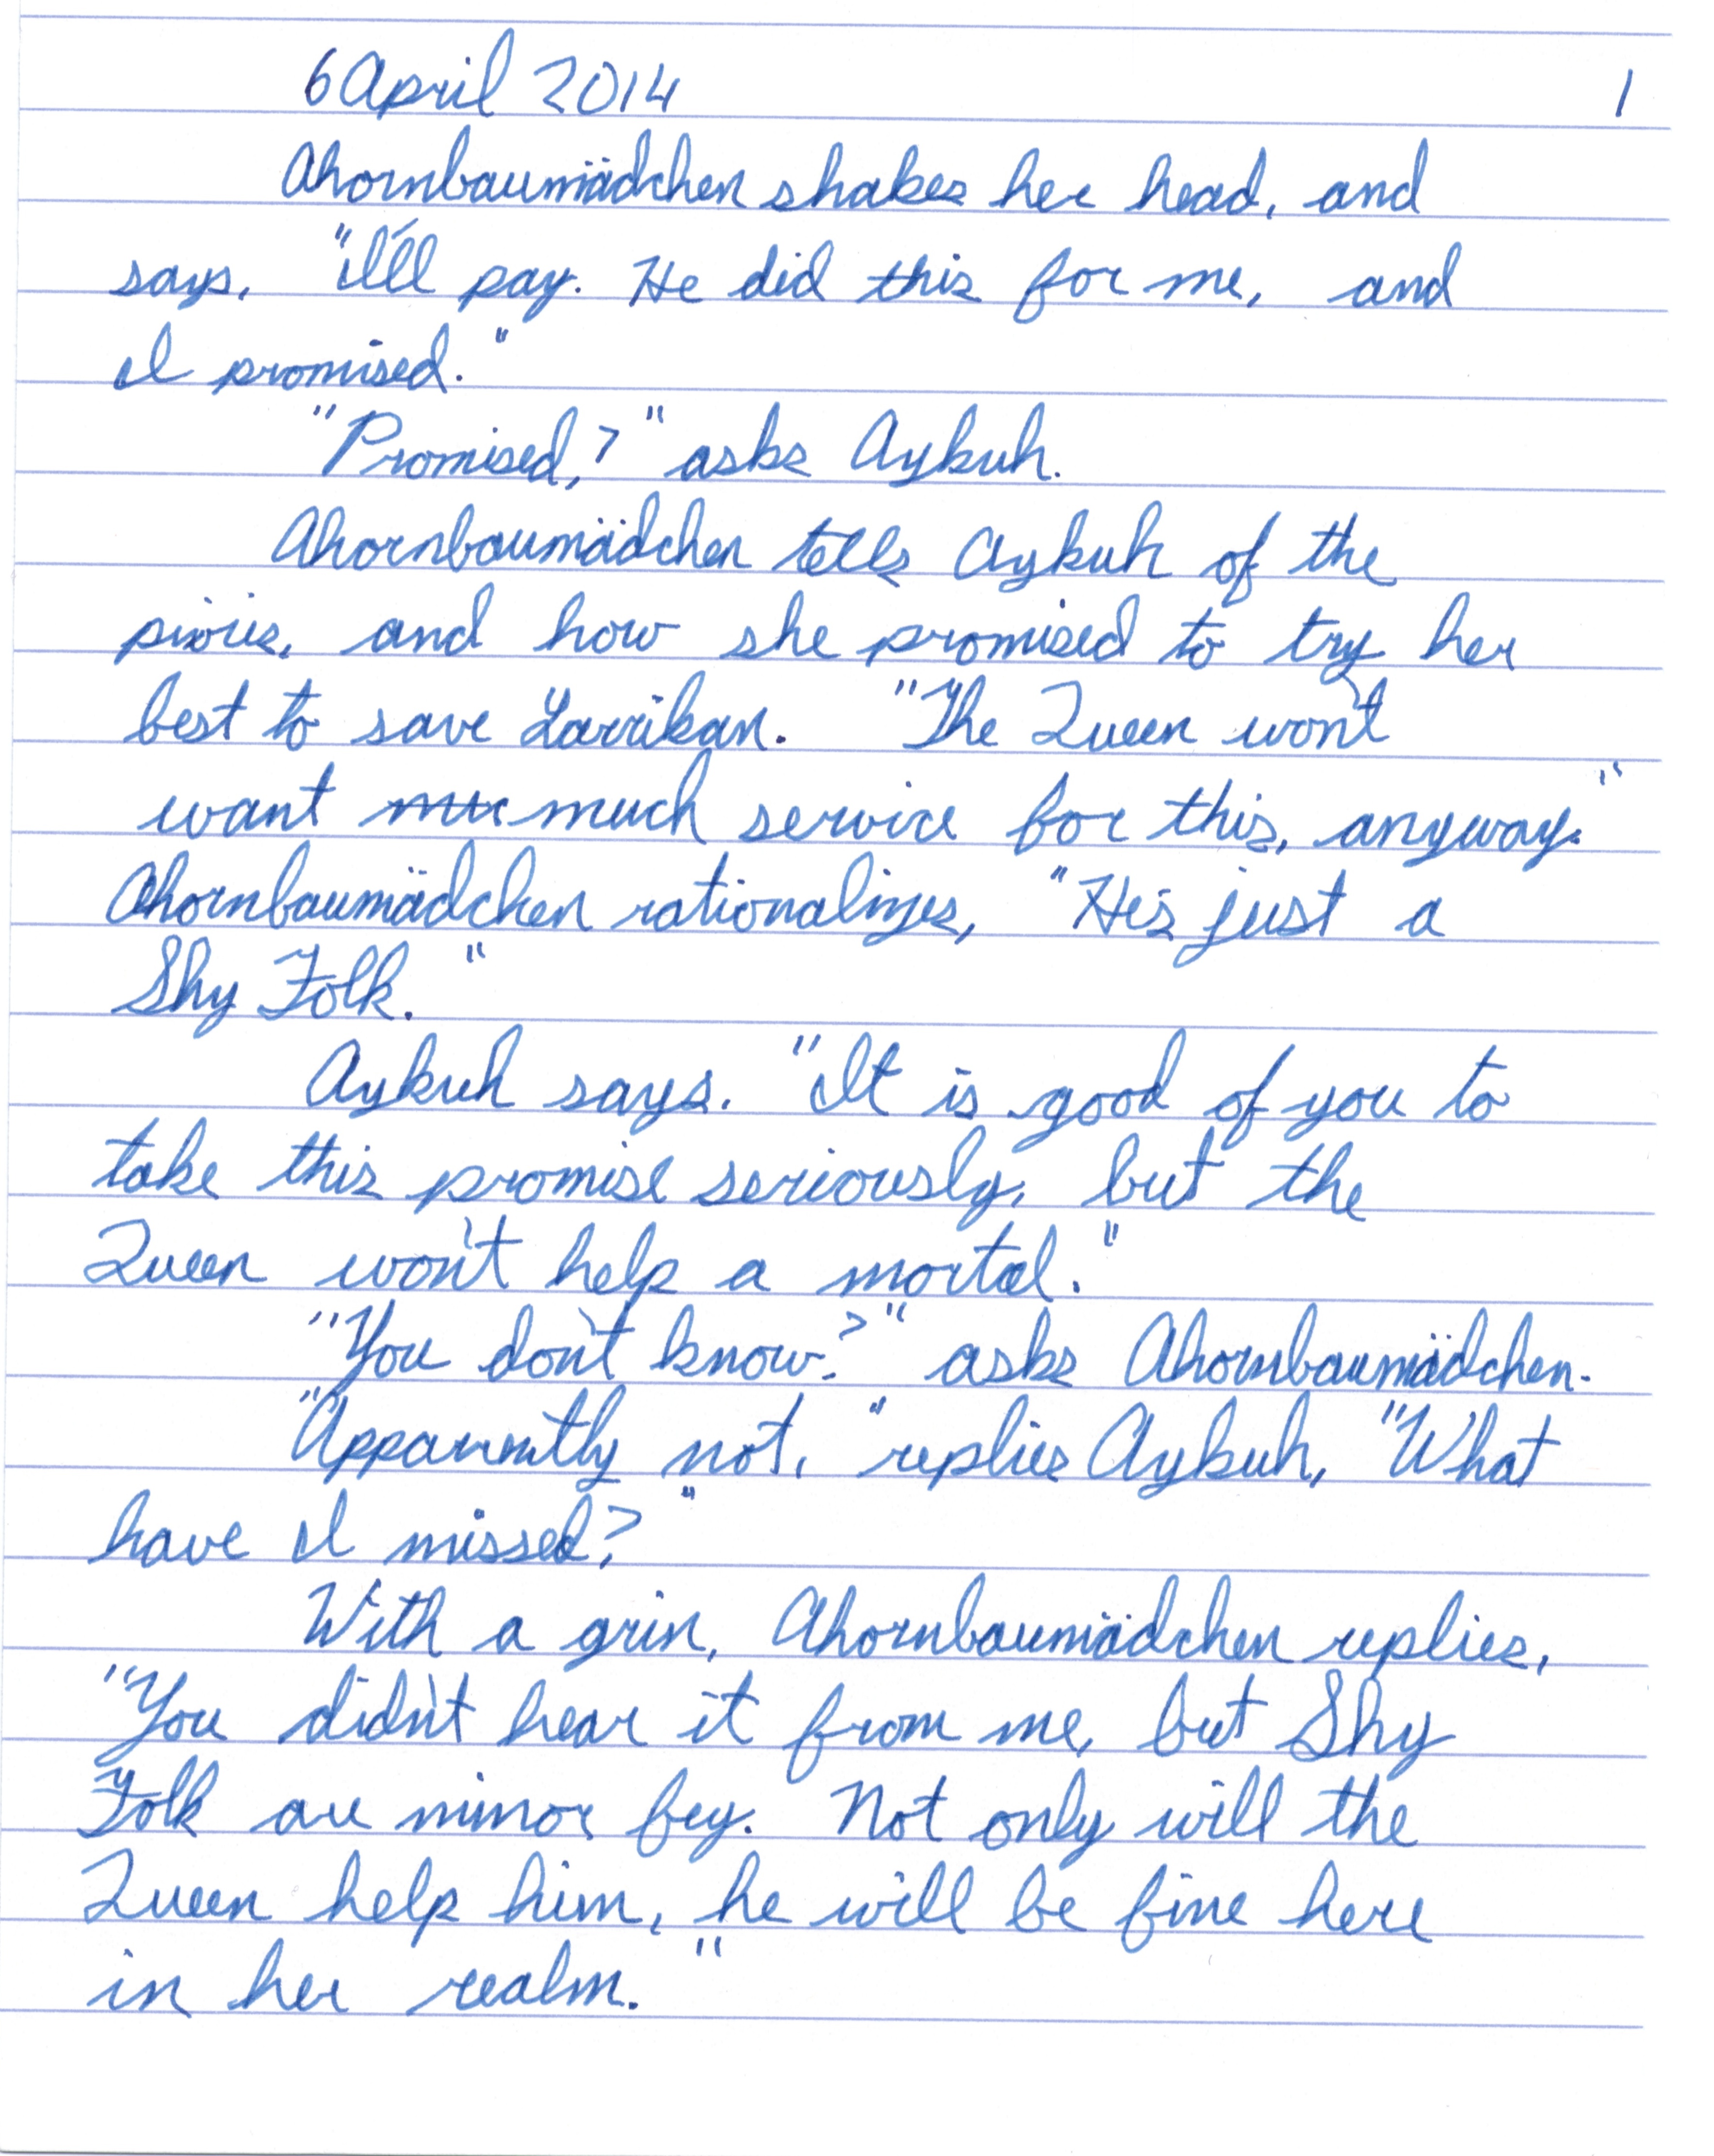 6 April 2014 1
Ahornbaumädchen shakes her head, and
says, "I'll pay. He did this for me, and
I promised."
"Promised,?" asks Aykuh.
Ahornbaumädchen tells Aykuh of the
pixies, and how she promised to try her
best to save Larrikan. "The Queen won't
want ~~muc~~ much service for this, anyway."
Ahornbaumädchen rationalizes, "He's just a
Shy Folk."
Aykuh says. "It is good of you to
take this promise seriously, but the
Queen won't help a mortal."
"You don't know?" asks Ahornbaumädchen.
"Apparently not," replies Aykuh, "What
have I missed?"
With a grin, Ahornbaumädchen replies,
"You didn't hear it from me, but Shy
Folk are minor fey. Not only will the
Queen help him, he will be fine here
in her realm."